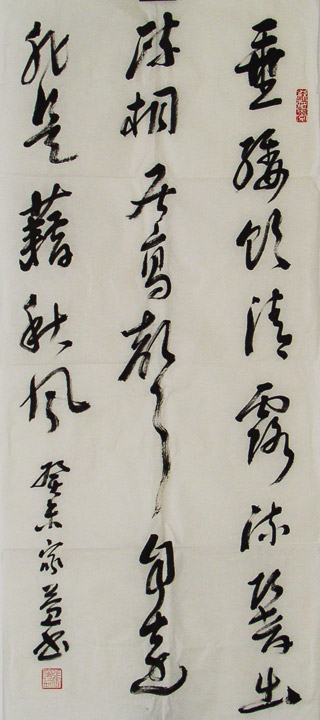 垂緌飲清露流響出
疏桐居高聲自遠
非是藉秋風
癸未家益書